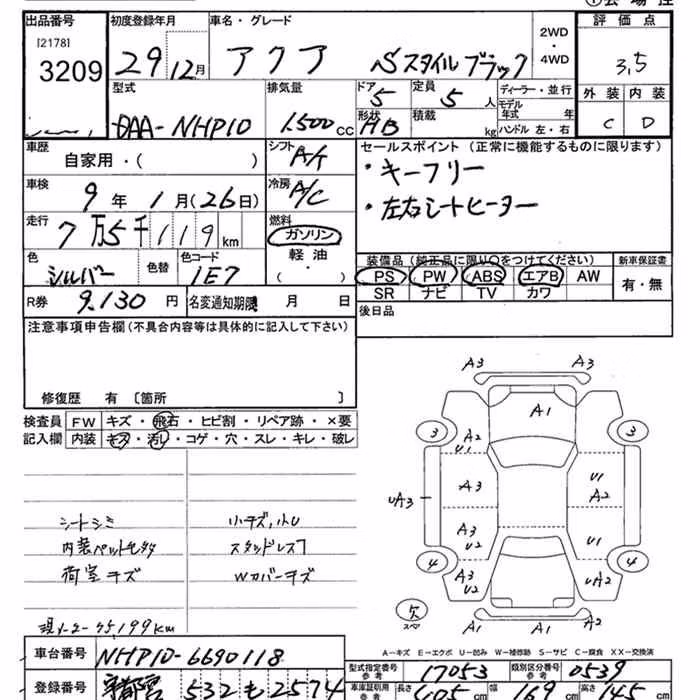 出品番号
[2178]
3209
初度登録年月
29 12月
車名・グレード
アクア Sスタイルブラック
2WD
・
4WD
評価点
3,5
外装 内装
C D
型式
DAA-NHP10
排気量
1,500cc
ドア
5
定員
5人
形状
HB
積載
kg
ディーラー・並行
モデル年式 年
ハンドル 左・右
車歴
自家用・( )
シフト
A/T
車検
9年 1月(26日)
冷房
A/C
走行
7万5千119km
燃料
ガソリン
軽油
( )
色
シルバー
色替
色コード
1E7
R券
9,130円
名変通知期限 月 日
セールスポイント(正常に機能するものに限ります)
・キーフリー
・左右シートヒーター
装備品(純正品に限り○をつけてください)
PS PW ABS エアB AW
SR ナビ TV カワ
新車保証書
有・無
後日品
注意事項申告欄(不具合内容等は具体的に記入して下さい)
修復歴 有〔箇所 〕
検査員記入欄
FW キズ・飛石・ヒビ割・リペア跡・×要
内装 キズ・汚レ・コゲ・穴・スレ・キレ・破レ
シートシミ
内装ペット毛多
荷室キズ
現メーター75199km
小キズ,小U
スタッドレス7
Wカバーキズ
A3 A3
A1
3 3
A2
UA3
A3
U1
A2
A3
U2
U1
4 4
A3
U2
UA2
欠
スペア
A1 A1 A2
A-キズ E-エクボ U-凹み W-補修跡 S-サビ C-腐食 XX-交換済
車台番号
NHP10-6690118
登録番号
宇都宮 532 も 2574
型式指定番号
参考
17053
類別区分番号
参考
0539
車庫証明用
参考
長さ 405cm 幅 169cm 高さ 145cm